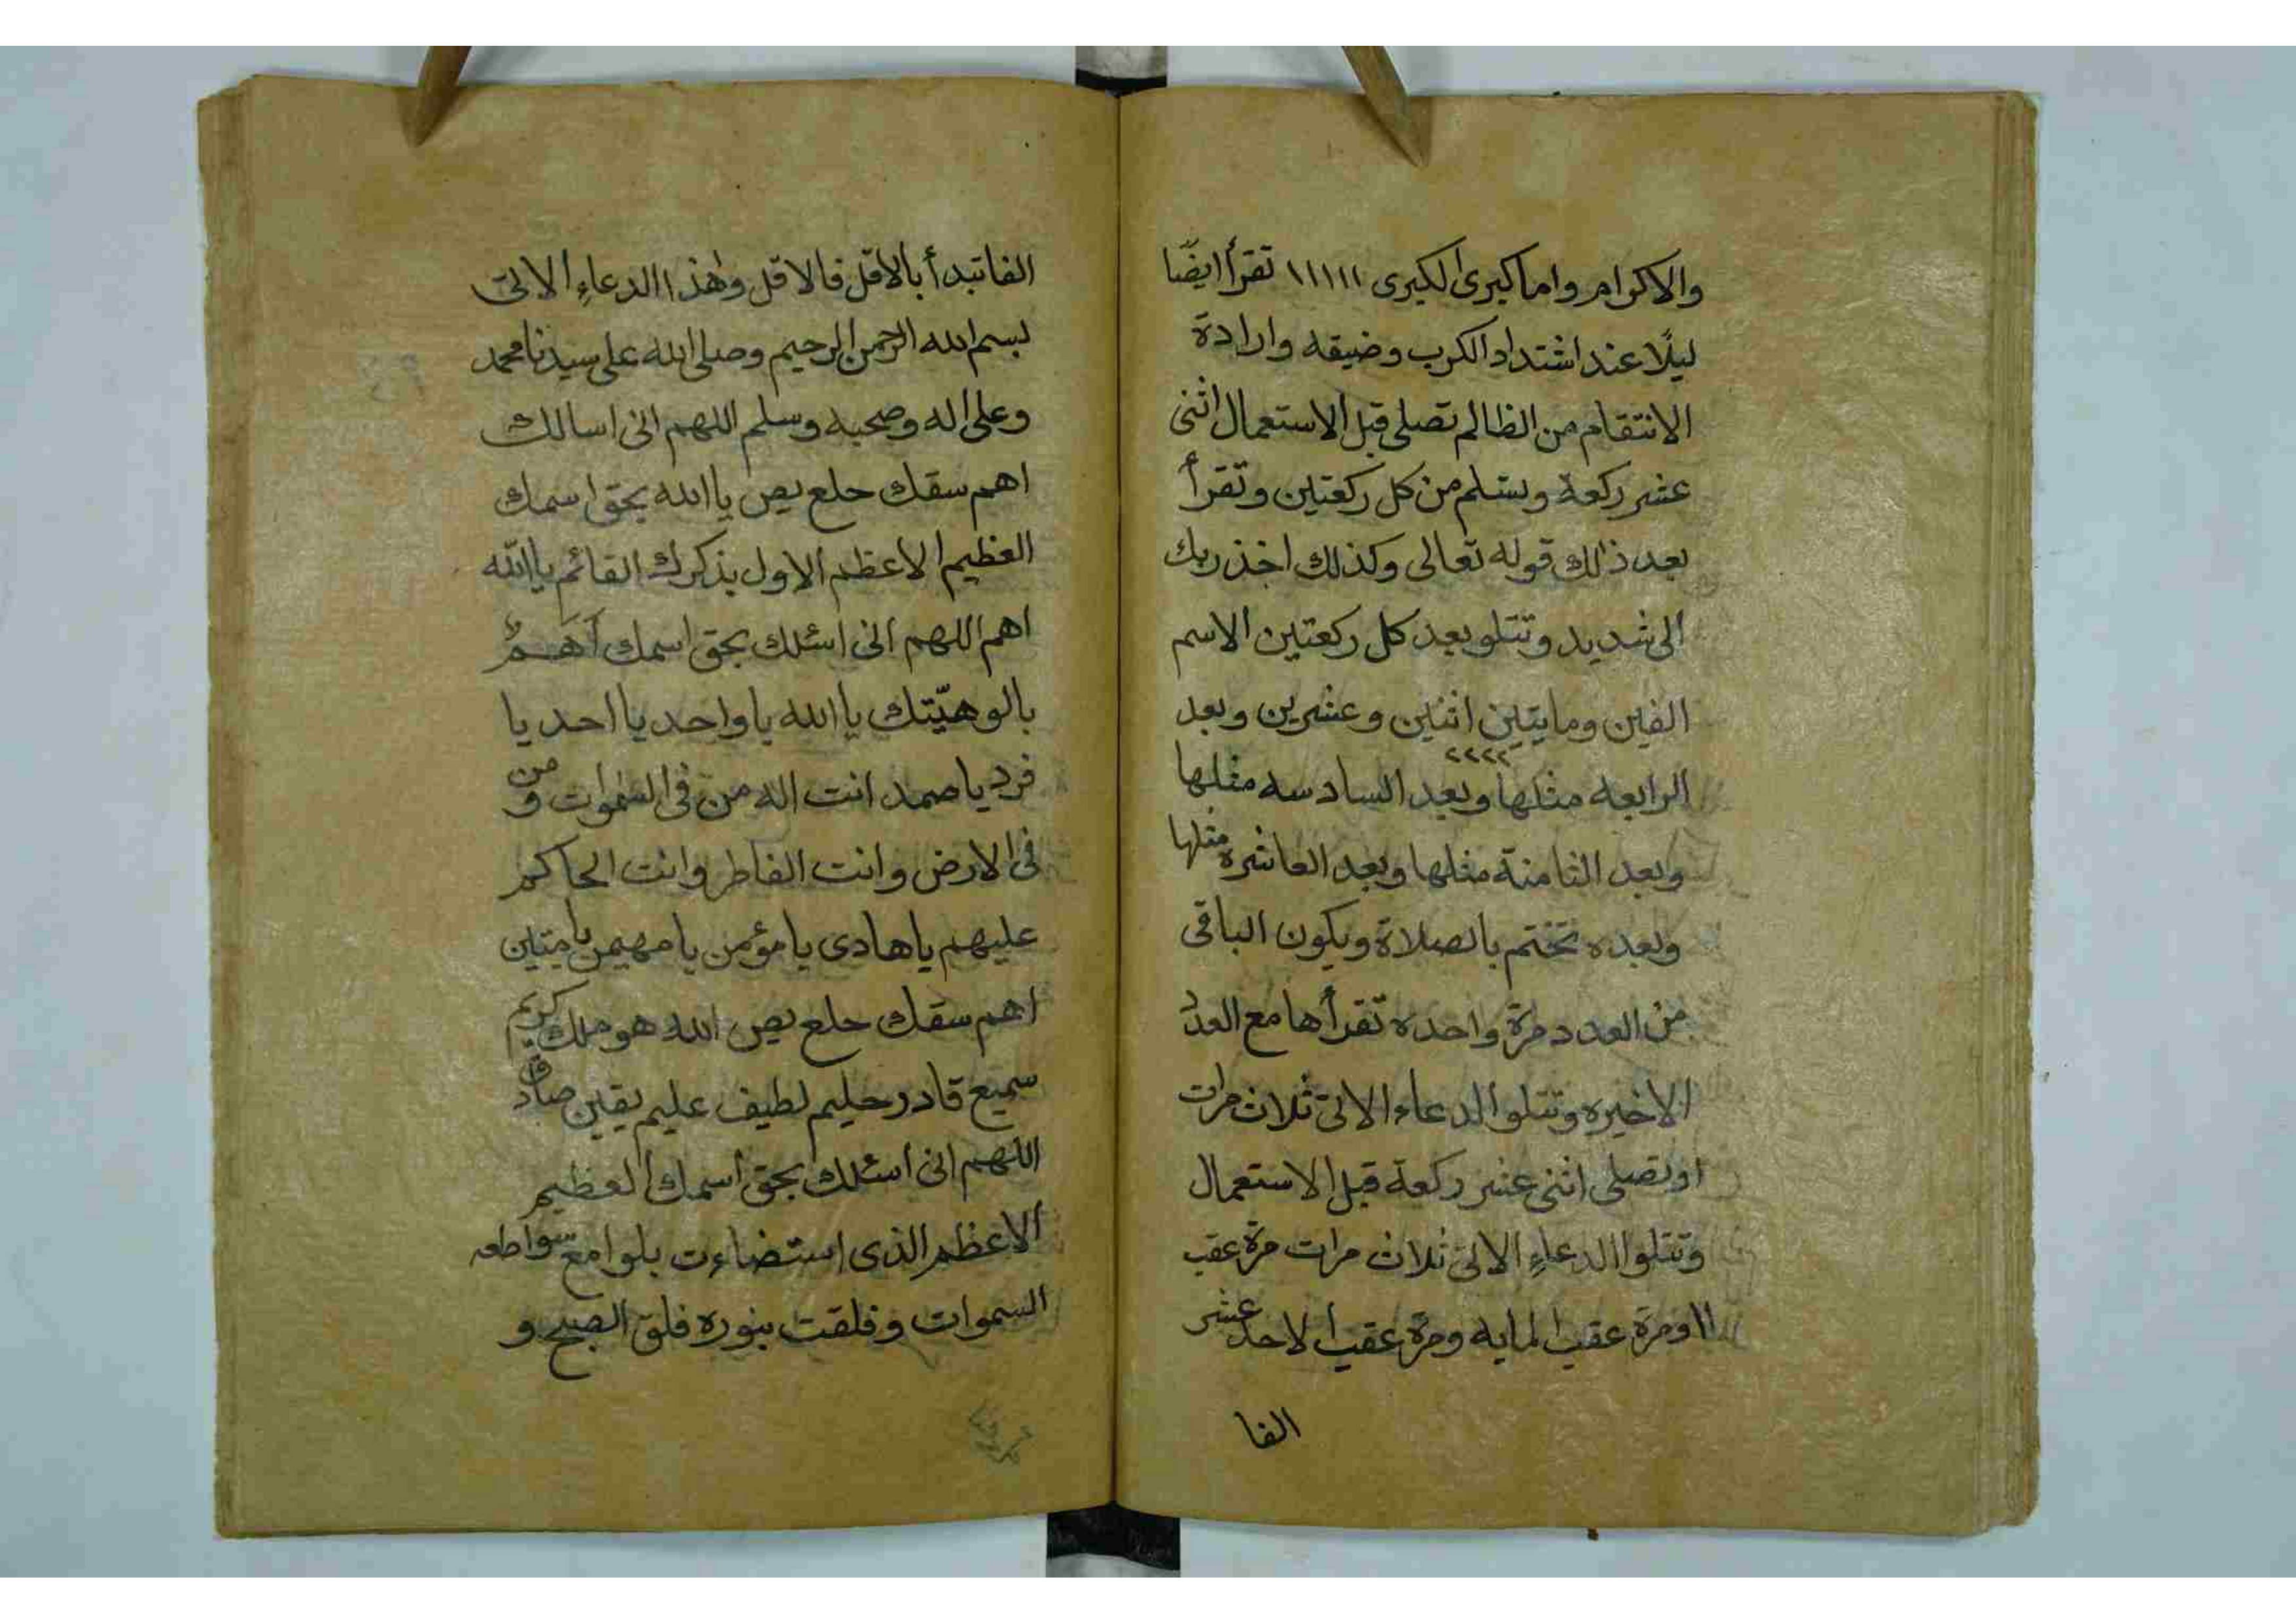 والاكرام واما كبرى الكبرى ١١١١١ تقرأ ايضًا
ليلًا عند اشتداد الكرب وضيقه وارادة
الانتقام من الظالم تصلى قبل الاستعمال اثنى
عشر ركعة وتسلم من كل ركعتين وتقرأ
بعد ذلك قوله تعالى وكذلك اخذ ربك
الى شديد وتتلو بعد كل ركعتين الاسم
الفين ومايتين اثنين وعشرين وبعد
٢٢٢٢
الرابعه مثلها وبعد السادسه مثلها
وبعد الثامنة مثلها وبعد العاشره مثلها
وبعده تختم بالصلاة ويكون الباقى
من العدد مرة واحده تقرأها مع العدد
الاخيره وتتلو الدعاء الاتى ثلاث مرات
او تصلى اثنى عشر ركعة قبل الاستعمال
وتتلوا الدعاءِ الاتى ثلاث مرات مرة عقب
١١ ومرة عقيب المايه ومرة عقيب الاحد عشر
الفا
الفا تبدأ بالاقل فالاقل وهذا الدعاءِ الاتى
بسم الله الرحمن الرحيم وصلى الله على سيدنا محمد
وعلى اله وصحبه وسلم اللهم انى اسالك
اهم سقك حلع يص يا الله بحق اسمك
العظيم الاعظم الاول بذكرك القائم يا الله
اهم اللهم انى اسئلك بحق اسمك اَهَمٌ
بالوهيّتك يا الله يا واحد يا احد يا
فرد يا صمد انت اله من فى السموات ومن
فى الارض وانت الفاطر وانت الحاكم
عليهم يا هادى يا مؤمن يا مهيمن يا متين
اهم سقك حلع يص الله هو ملك كريم
سميع قادر حليم لطيف عليم يقين صادق
اللهم انى اسئلك بحق اسمك العظيم
الاعظم الذى استضاءت بلوامع سواطعه
السموات وفلقت بنوره فلق الصبح و